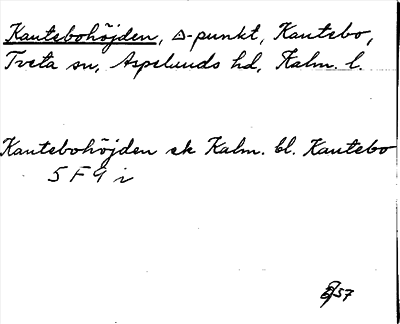 Kantebohöjden, △-punkt, Kantebo,
Tveta sn, Aspelands hd, Kalm. l.
Kantebohöjden ek Kalm. bl. Kantebo
5 F 9 i
57